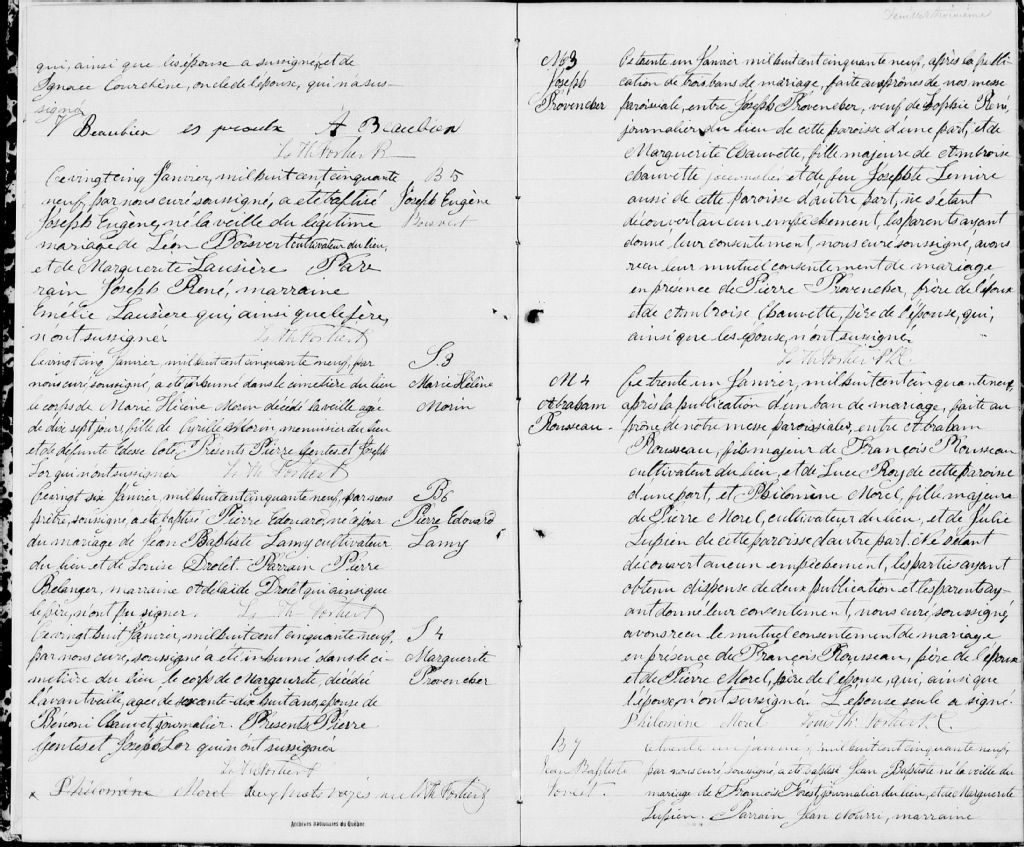 qui, ainsi que les épouse a susigné, et de
Ignace Courchène, oncle de l'épouse, qui n'a sus-
signé
Beaubien es proulx A Beaubien
L. Th. Fortier Ptr
Ce vingt cinq Janvier, mil huit cent cinquante
neuf, par nous curé soussigné, a été baptisé
Joseph Eugène, né la veille du légitime
mariage de Léon Boisvert cultivateur du lieu,
et de Marguerite Lausière Par
rain Joseph René, marraine
Emélie Lausiere qui, ainsi que le père,
n'ont su signer
L. Th. Fortier
B 5
Joseph Eugène
Boisvert
Ce vingt cinq Janvier, mil huit cent cinquante neuf, par
nous curé soussigné, a été inhumé dans le cimetière du lieu
le corps de Marie Hélène Morin décédé la veille agée
de dix sept jours, fille de Cyrille Morin, menuisier du lieu
et de défunte Edesse Coté. Présents Pierre Gentes et Joseph
Lor qui n'ont su signer L. Th. Fortier
S 3
Marie Hélène
Morin
Ce vingt six Janvier, mil huit cent cinquante neuf, par nous
prêtre, soussigné a été baptisé Pierre Edouard, né ce jour
du mariage de Jean Baptiste Lamy cultivateur
du lieu et de Louise Drolet. Parrain Pierre
Belanger, marraine Adelaide Drolet qui ainsi que
le père, n'ont pu signer. L. Th. Fortier
B 6
Pierre Edouard
Lamy
Ce vingt huit Janvier, mil huit cent cinquante neuf,
par nous curé, soussigné a été inhumé dans le ci-
metière du lieu le corps de Marguerite, décédée
l'avant veille, agée de soixante-dix huit ans, épouse de
Bénoni Chauvet journalier. Présents Pierre
Gentes et Joseph Lor qui n'ont su signer
L. Th. Fortier
S 4
Marguerite
Provencher
x Philomène Morel deux mots rayés nul L. Th. Fortier
Archives nationales du Québec
M 3
Joseph
Provencher
Ce trente un Janvier mil huit cent cinquante neuf, après la publi-
cation de trois bans de mariage, faite aux prônes de nos messe
paroissiale, entre Joseph Provencher, veuf de Sophie René,
journalier du lieu de cette paroisse d'une part, et de
Marguerite Chauvette, fille majeure de Ambroise
Chauvette journalier et de feu Josephte Lemire
aussi de cette paroisse d'autre part, ne s'étant
découvert aucun empêchement, les parents ayant
donné leur consentement, nous curé soussigné, avons
reçu leur mutuel consentement de mariage
en présence de Pierre Provencher, frère de l'époux
et de Ambroise Chauvette, père de l'épouse, qui,
ainsi que les épouse, n'ont su signé.
L. Th. Fortier Ptr
M 4
Abraham
Rousseau.
Ce trente un Janvier, mil huit cent cinquante neuf,
après la publication d'un ban de mariage, faite au
prône de notre messe paroissiales, entre Abraham
Rousseau, fils majeur de François Rousseau
cultivateur du lieu, et de Luce Roy de cette paroisse
d'une part, et Philomène Morel, fille majeure
de Pierre Morel, cultivateur du lieu, et de Julie
Lupien de cette paroisse d'autre part. ne s'étant
découvert aucun empêchement, les parties ayant
obtenu dispense de deux publication et les parents ay-
ant donné leur consentement, nous curé, soussigné,
avons reçu le mutuel consentement de mariage
en présence de François Rousseau, père de l'époux
et de Pierre Morel, père de l'épouse, qui, ainsi que
l'époux, n'ont su signé. L'épouse seule a signé.
Philomine Morel Louis Th. Fortier Ptr
B 7
Jean Baptiste
Forest.
Ce trente un janvier, mil huit cent cinquante neuf,
par nous curé, soussigné, a été baptisé Jean Baptiste né la veille du
mariage de François Forest, journalier du lieu, et de Marguerite
Lupien. Parrain Jean Nourri, marraine